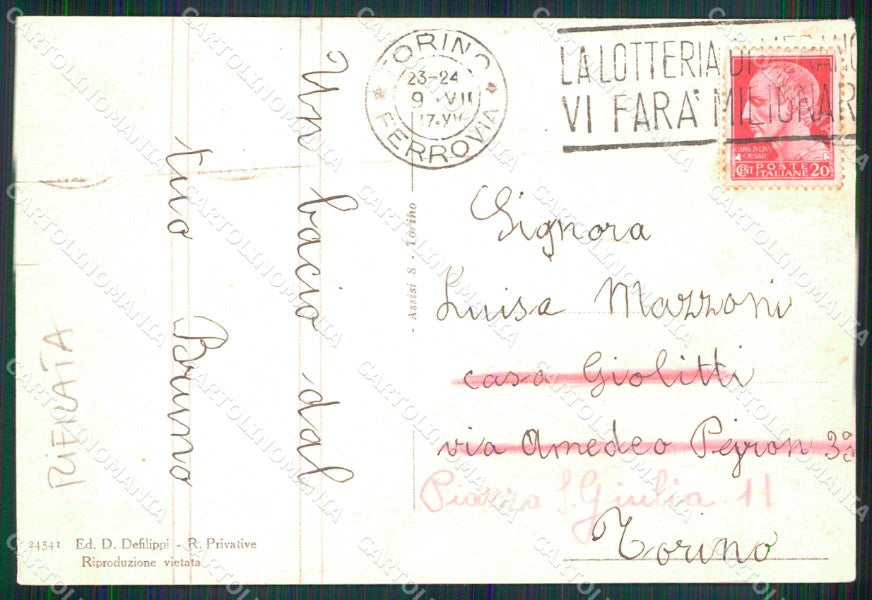 TORINO
23-24
9 · VII
FERROVIA
LA LOTTERIA DI MERANO
VI FARA' MILIONAR
CAIVS IVLIVS
CAESAR
CENT POSTE ITALIANE 20
Un bacio dal
tuo Bruno
RIFILATA
- Assisi 8 - Torino
Signora
Luisa Mazzoni
casa Giolitti
via Amedeo Peyron 3º
Piazza S. Giulia 11
Torino
24541 Ed. D. Defilippi - R. Privative
Riproduzione vietata
CARTOLINOMANIA